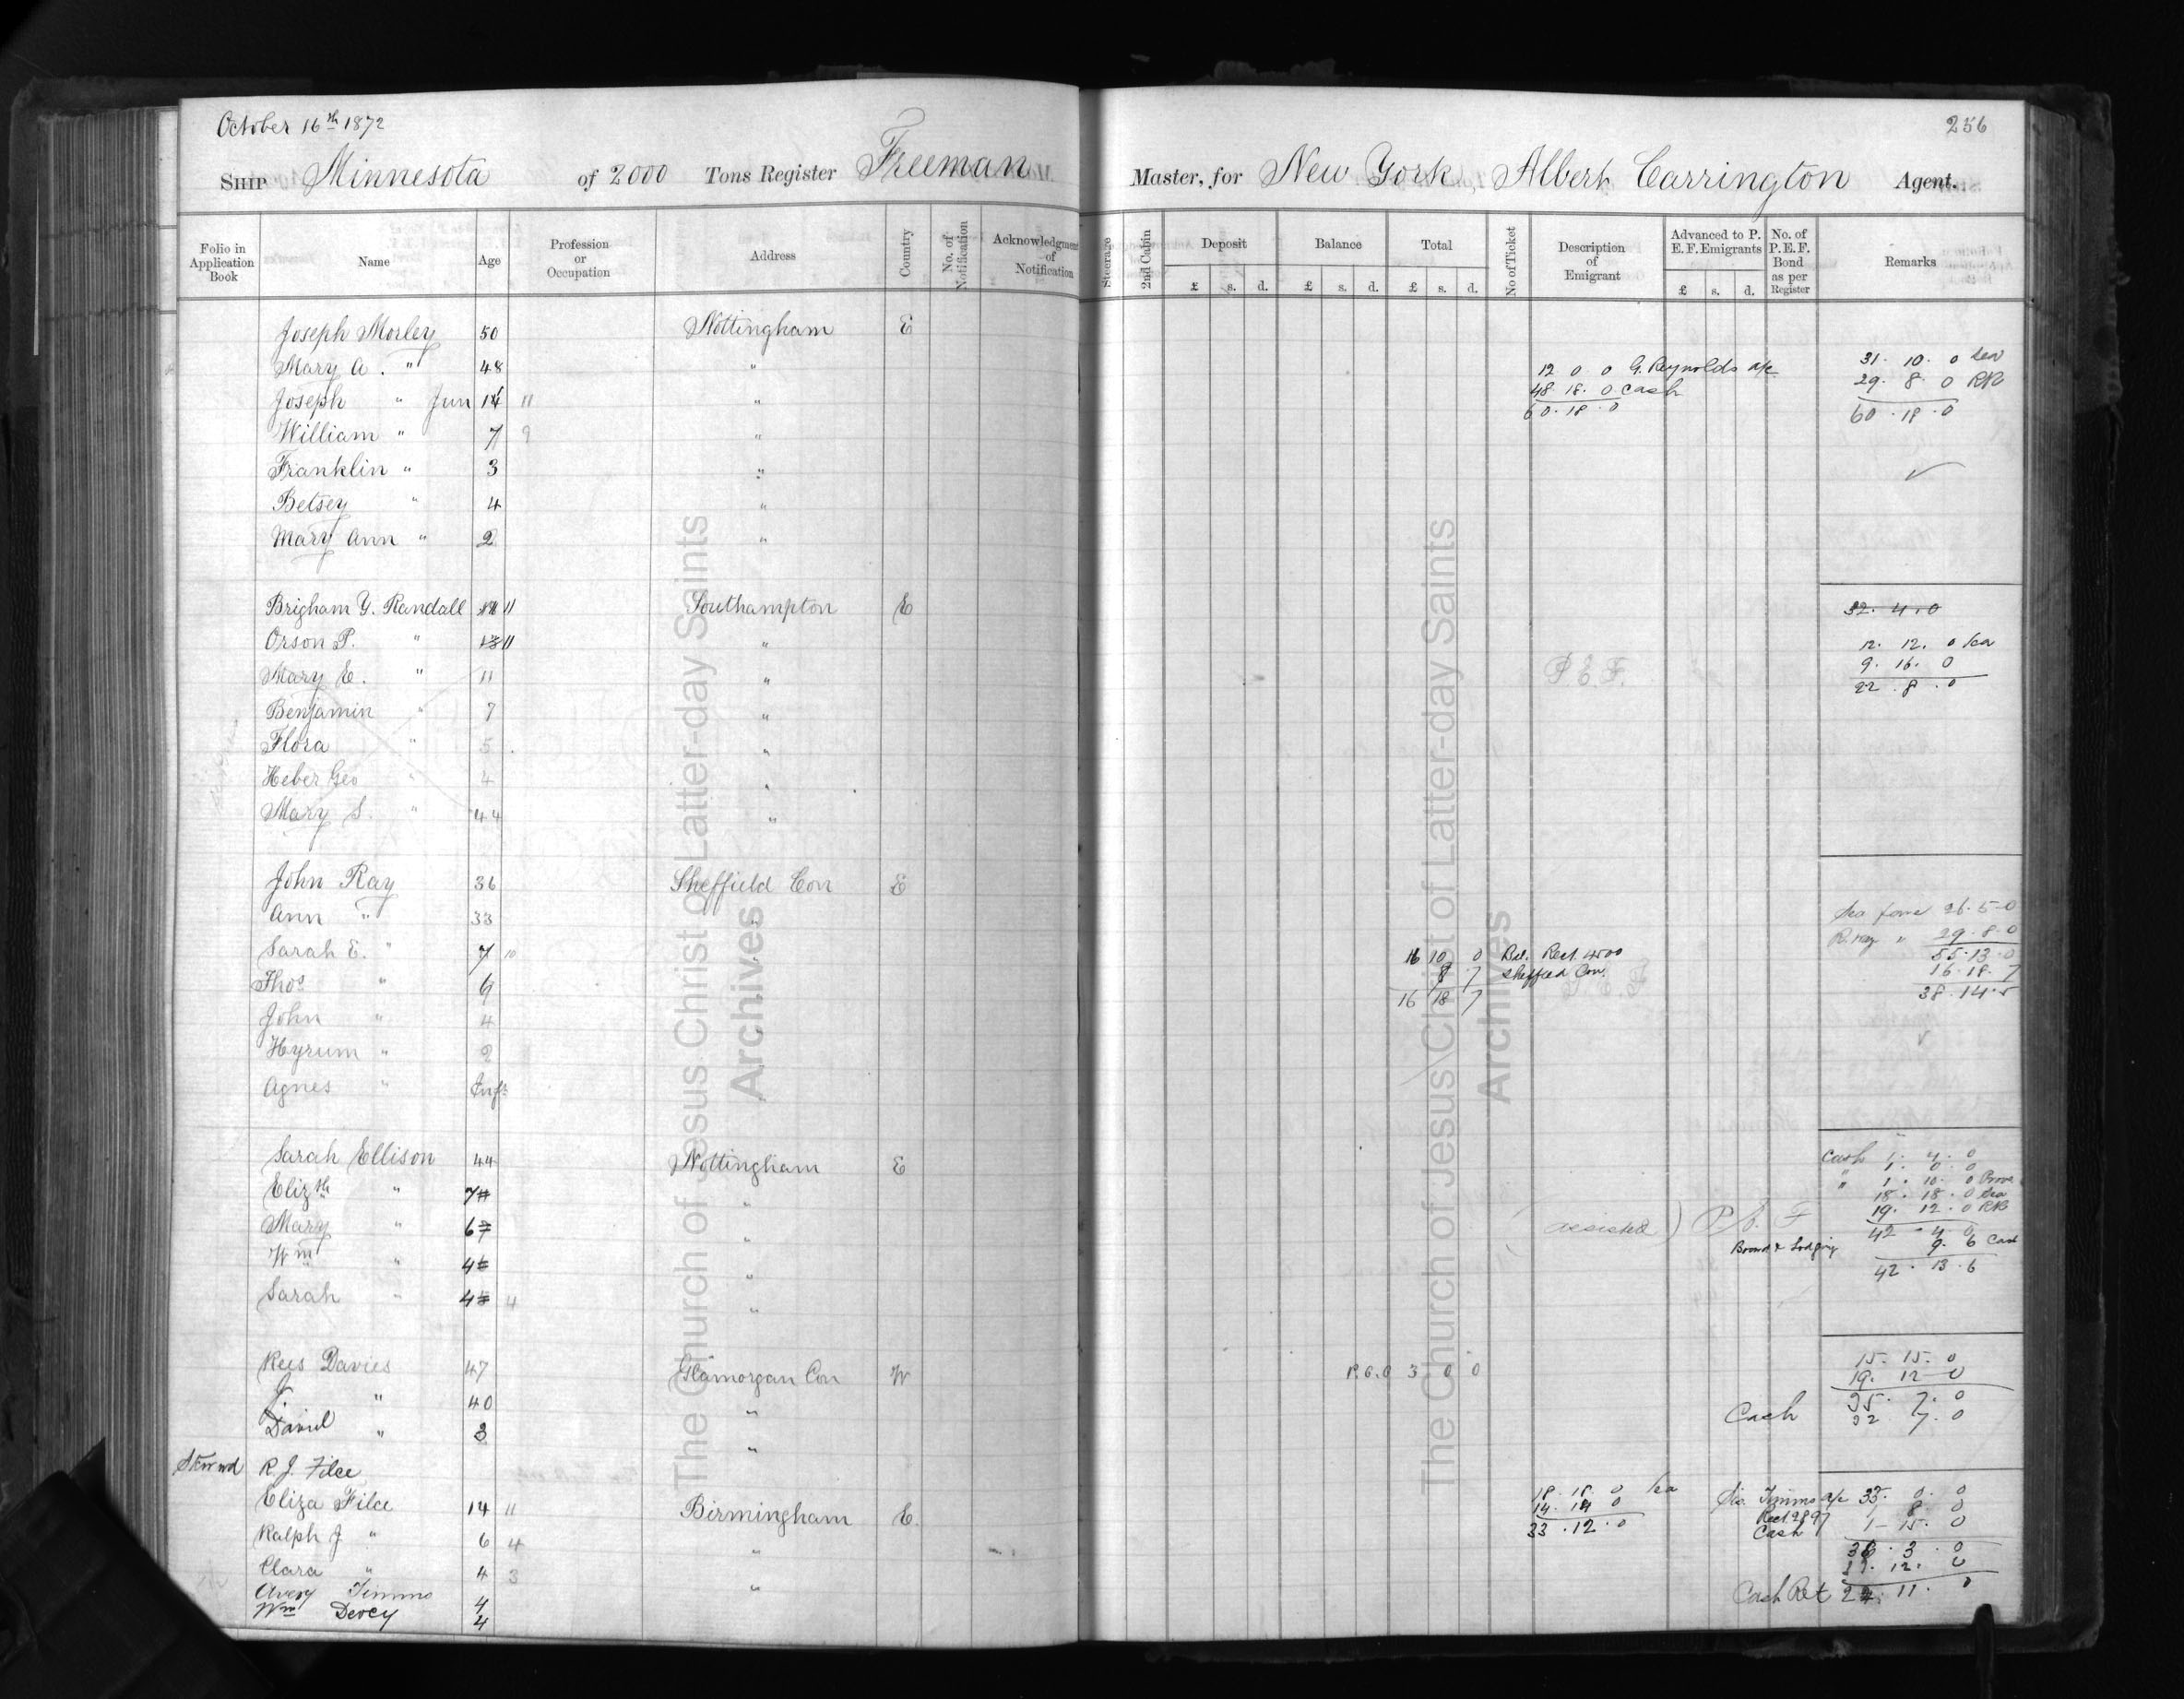 October 16th 1872
256
Ship Minnesota of 2000 Tons Register Freeman Master, for New York Albert Carrington Agent.
Folio in Application Book Name Age Profession or Occupation Address Country No. of Notification Acknowledgment of Notification Steerage 2nd Cabin Deposit Balance Total No of Ticket Description of Emigrant Advanced to P. E. F. Emigrants No. of P. E. F. Bond as per Register Remarks
£ s. d. £ s. d. £ s. d. £ s. d.
Joseph Morley 50 Nottingham E
Mary A. " 48 " 12 0 0 G. Reynolds a/c 31. 10. 0 Sea
Joseph " Jun 14 11 " 48 18. 0 Cash 29. 8. 0 RR
60. 18. 0 60. 18. 0
William " 7 9 "
Franklin " 3 "
Betsey " 4 "
Mary Ann " 2 "
Brigham Y. Randall 11 Southampton E 32. 4. 0
Orson P. " 13 11 " 12. 12. 0 Sea
Mary E. " 11 " P. E. F. 9. 16. 0
22. 8. 0
Benjamin " 7 "
Flora " 5 "
Heber Geo " 4 "
Mary S. " 44 "
John Ray 36 Sheffield Con E
Ann " 33 " Sea fare 26. 5-0
Sarah E. " 7 10 16 10 0 Rect. 4500 R. way " 29. 8. 0
8 7 Sheffield Con. 55. 13. 0
Thos " 6 16 18 7 16. 18. 7
38. 14. 5
John " 4
Hyrum " 2
Agnes " Inft
Sarah Ellison 44 Nottingham E Cash 1. 4. 0
" 1. 0. 0
Elizth " 7 " 1. 10. 0 Provs
18. 18. 0 Sea
Mary " 6 7 " (assisted) P. E. F 19. 12. 0 RR
42. 4. 0
Wm " 4 " Board & Lodging 9. 6 Cash
42. 13. 6
Sarah " 4 4 "
Rees Davies 47 Glamorgan Con W P.O.O 3 0 0 15. 15. 0
19. 12 0
J. " 40 " 35. 7. 0
David " 3 " Cash 32. 7. 0
R. J. Filce
Eliza Filce 14 11 Birmingham E 18. 18. 0 Sea Timms a/c 35. 0. 0
14. 14 0 Rect. 2897 8 0
Ralph J " 6 4 " 33. 12. 0 Cash 1- 15. 0
Clara " 4 3 " 3. 0
12. 0
Avery Timms 4 Cash Ret 11. 0
Wm Devey 4
The Church of Jesus Christ of Latter-day Saints
Archives
The Church of Jesus Christ of Latter-day Saints
Archives